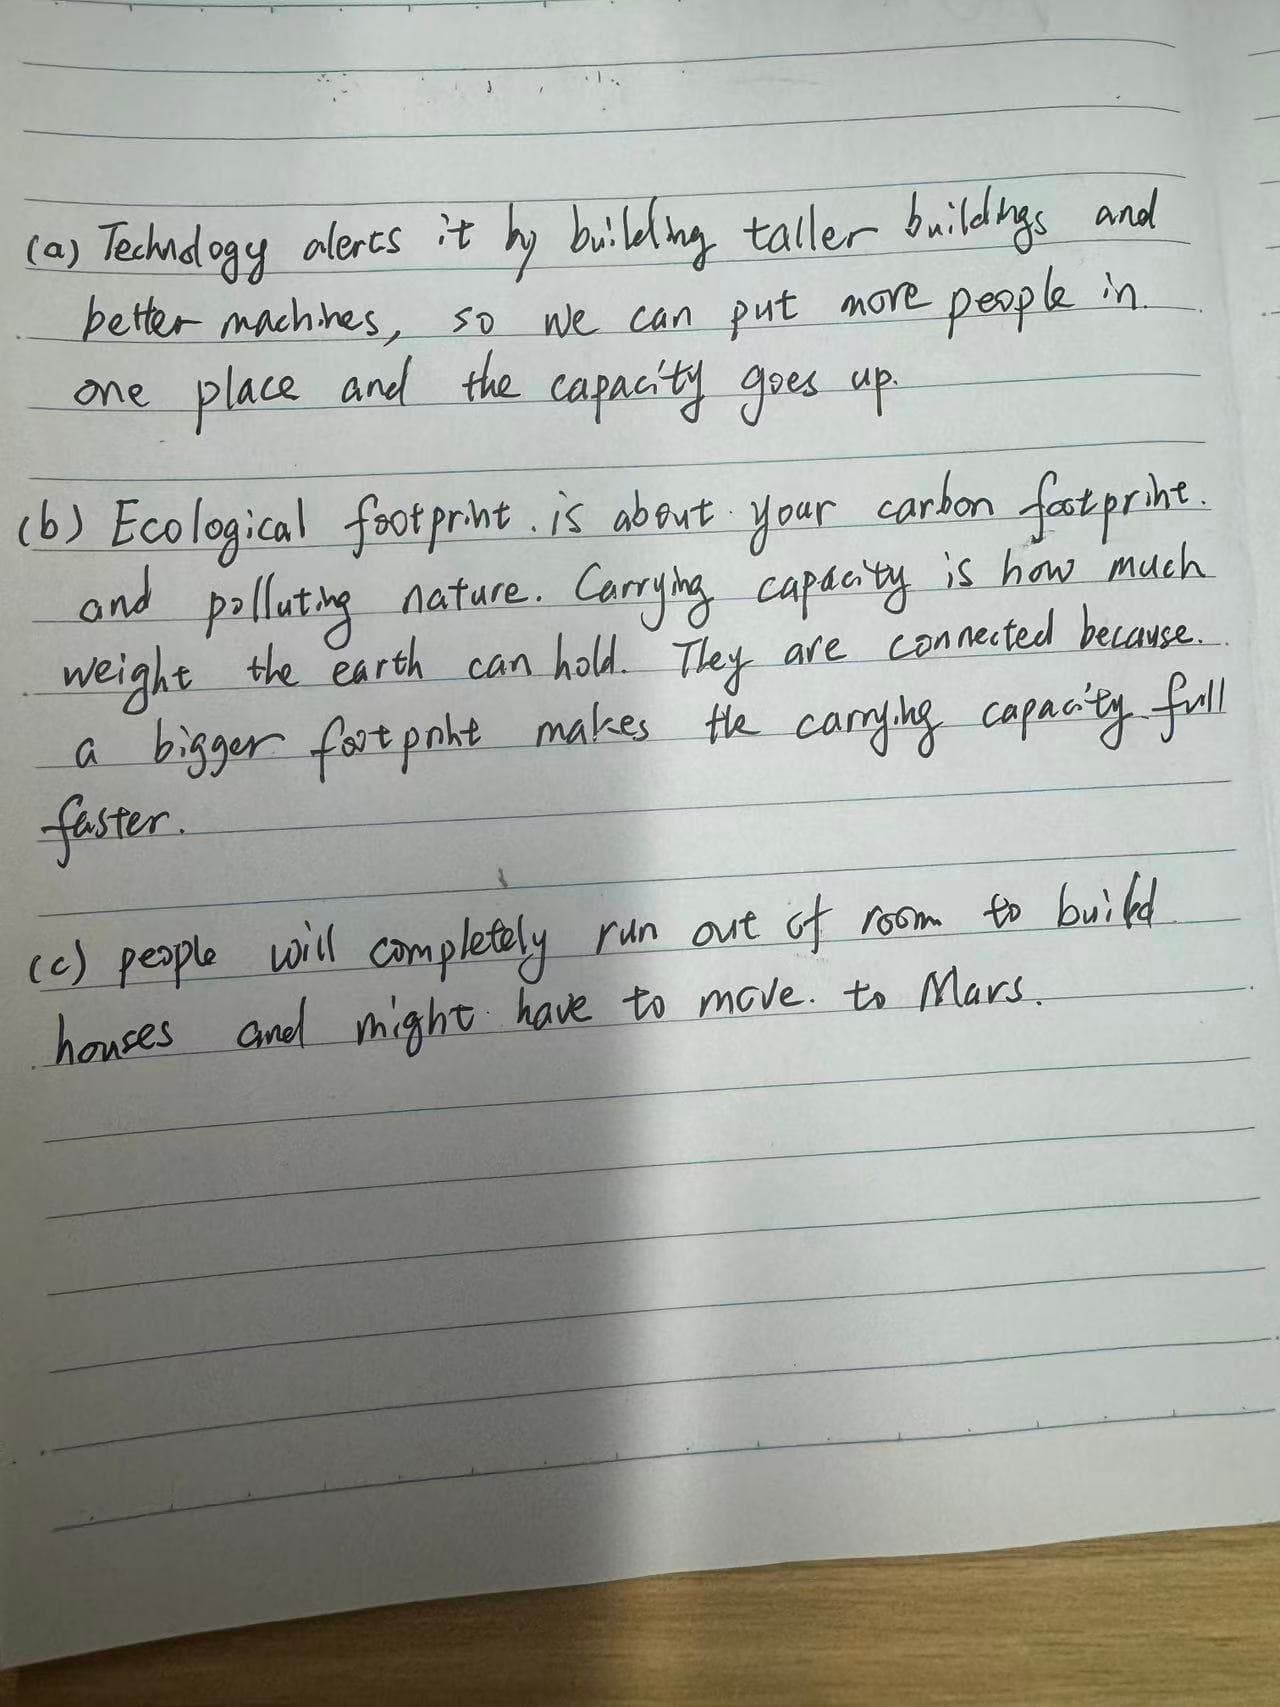 (a) Technology alerts it by building taller buildings and
better machines, so we can put more people in
one place and the capacity goes up.
(b) Ecological footprint. is about your carbon footprint.
and polluting nature. Carrying capacity is how much
weight the earth can hold. They are connected because.
a bigger footprint makes the carrying capacity full
faster.
(c) people will completely run out of room to build
houses and might have to move. to Mars.